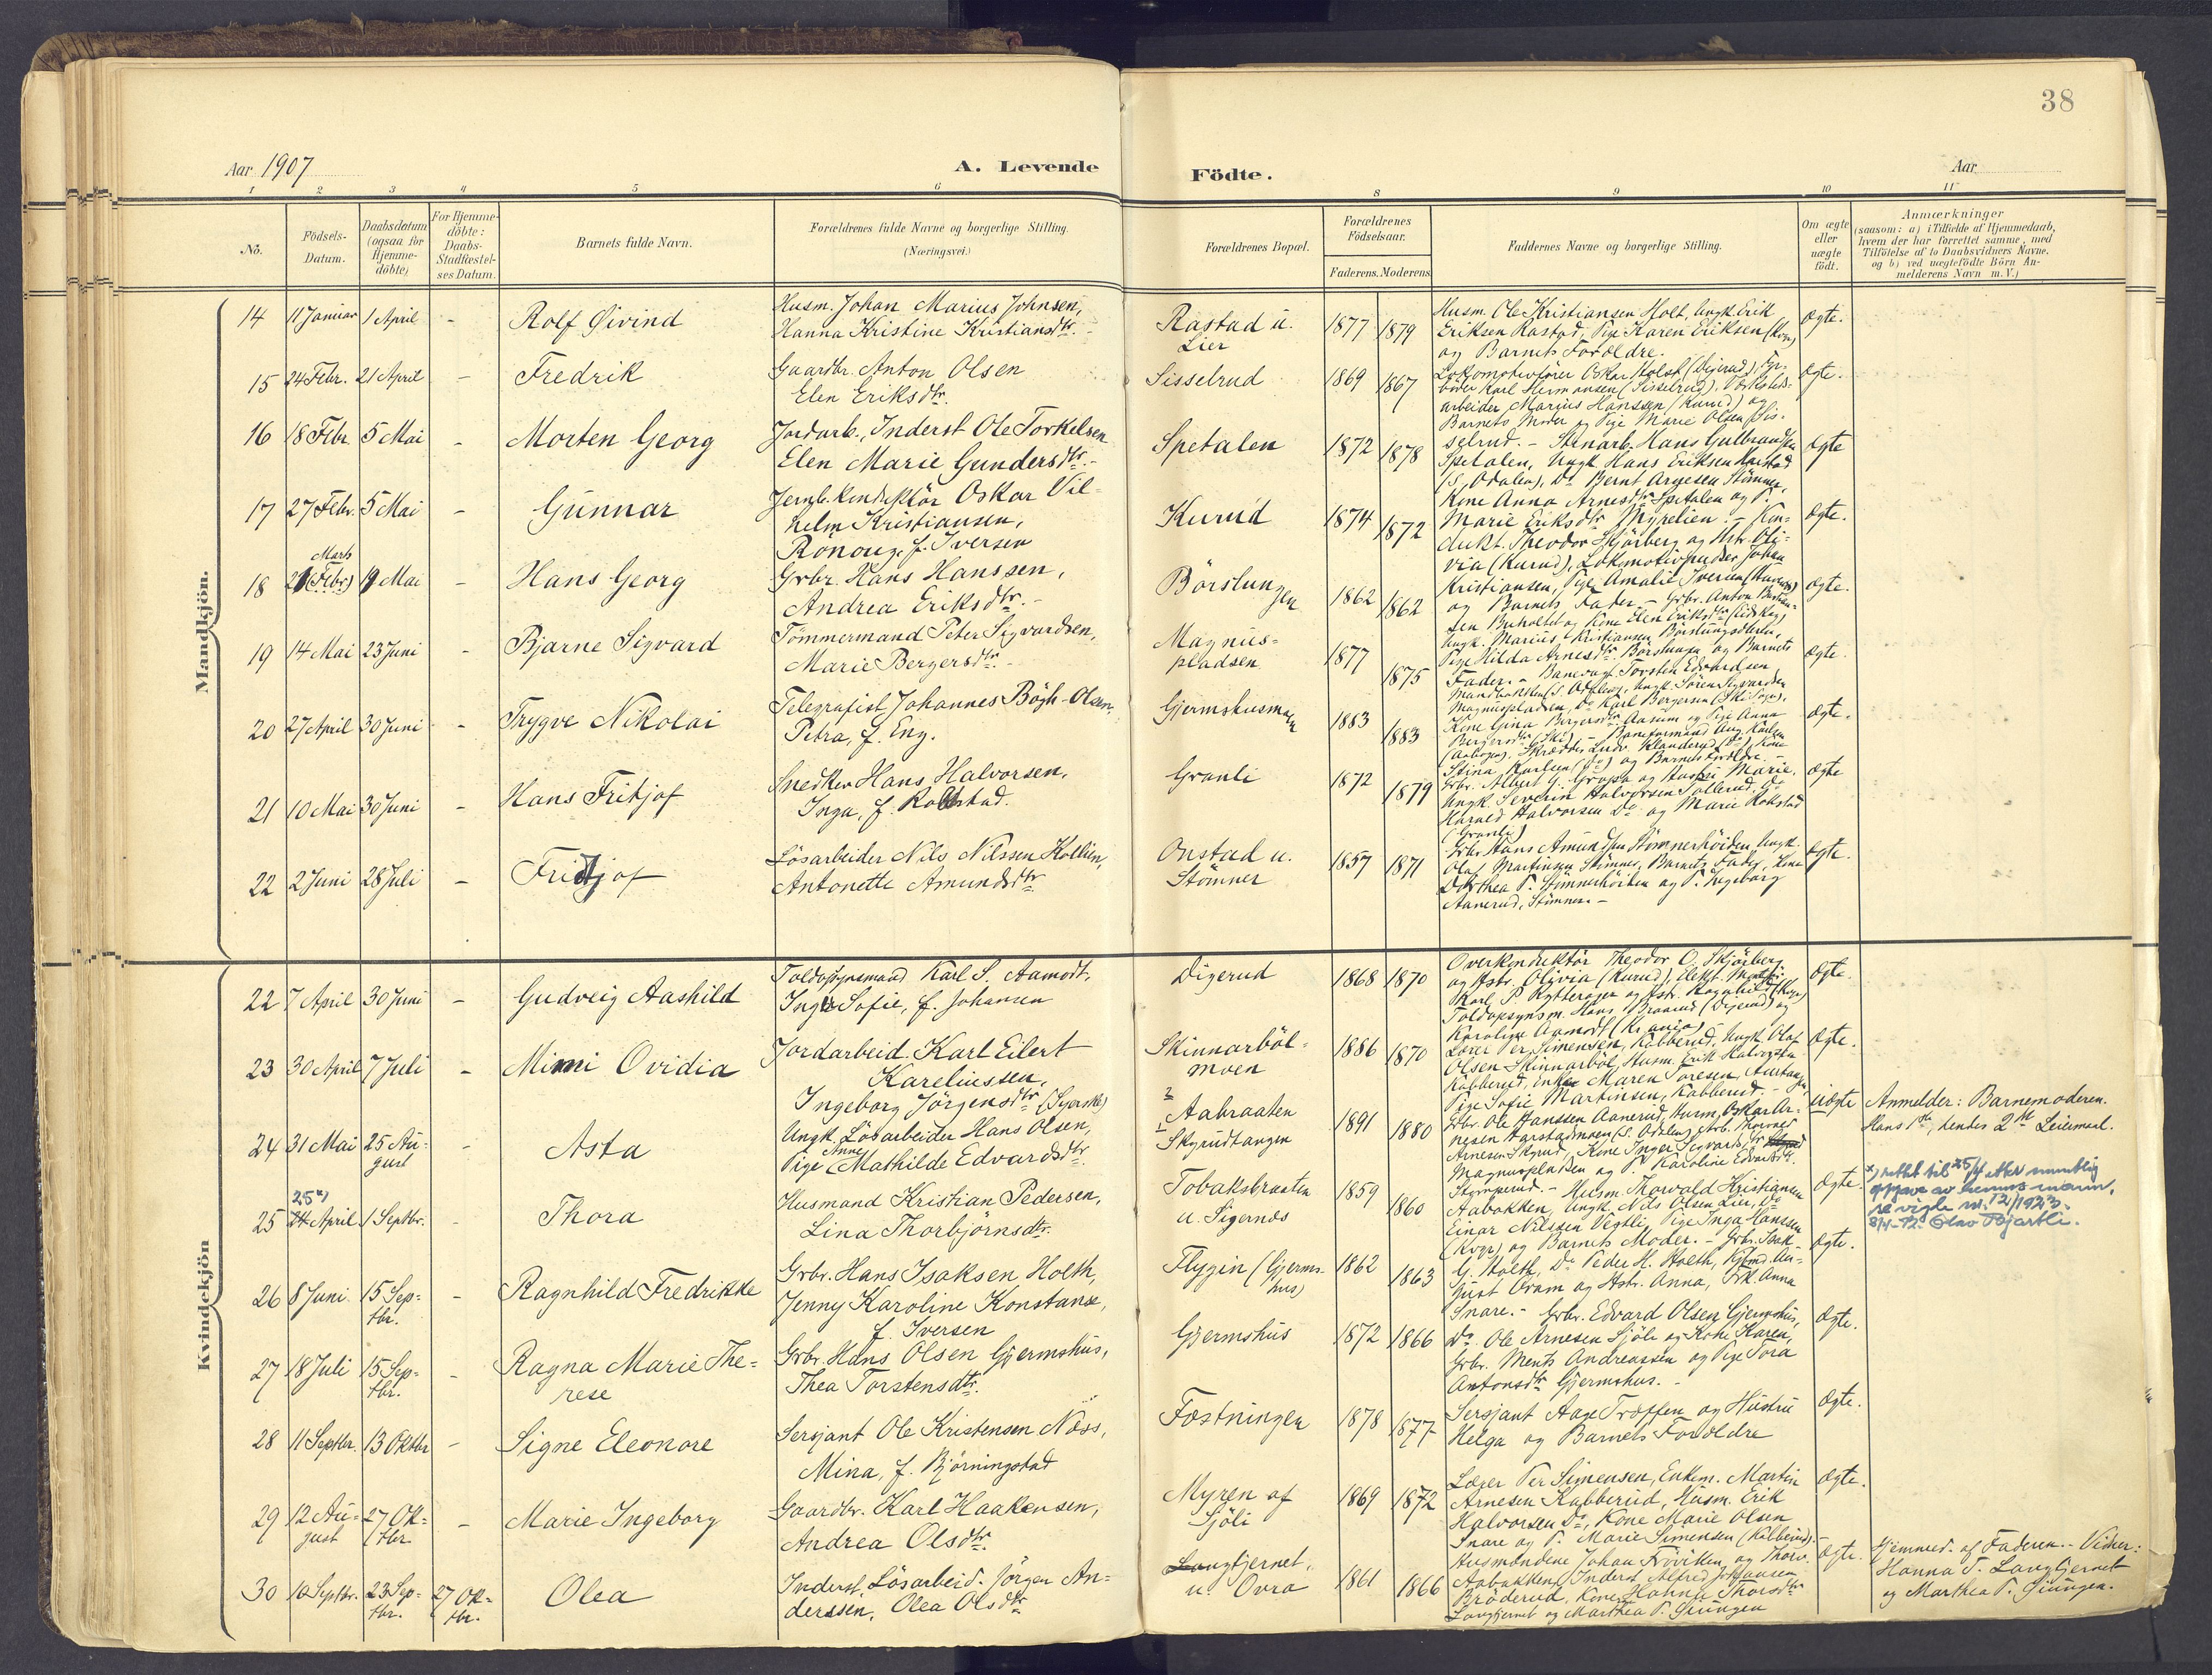 38
Aar 1907
A. Levende Födte.
Aar
1 2 3 4 5 6 8 9 10 11
No.
Födsels-Datum.
Daabsdatum (ogsaa for Hjemme-döbte)
For Hjemme-döbte: Daabs-Stadfæstel-ses Datum.
Barnets fulde Navn.
Forældrenes fulde Navne og borgerlige Stilling.
(Næringsvei.)
Forældrenes Bopæl.
Forældrenes Födselsaar.
Faderens. Moderens
Faddernes Navne og borgerlige Stilling.
Om ægte eller uægte födt.
Anmærkninger
(saasom: a) i Tilfælde af Hjemmedaab,
hvem der har forrettet samme, med
Tilföielse af to Daabsvidners Navne.
og b) ved uægtefödte Börn An-
melderens Navn m. V.)
Mandkjön.
14 11 Januar 1 April - Rolf Øivind
Husm. Johan Marius Johnsen,
Hanna Kristine Kristiansdtr.
Rastad u.
Lier
1877 1879
Husm. Ole Kristiansen Holt, Ungk. Erik
Eriksen Rastad, Pige Karen Eriksen (Kvgr)
og Barnets Forældre.
Ægte.
15 24 Febr. 21 April - Fredrik
Gaardbr. Anton Olsen
Elen Eriksdtr.
Sisselrud
1869 1867
Lokomotivförer Oskar Holst (Digerud),
Karl Hermansen (Sisselrud),
arbeider Marius Hanssen (Kurud) og
Barnets Moder og Pige Marie Olsen Sis-
selrud. -
Ægte.
16 18 Febr. 5 Mai - Morten Georg
Jordarb., Inderst Ole Torkelsen
Elen Marie Gundersdtr. -
Spetalen
1872 1878
Stenarb. Hans Gulbrandsen
Spetalen, Ungk. Hans Eriksen
(S. Odalen), Do Bernt Arnesen Stömner,
Kone Anna Arnesdtr Spetalen og P.
Marie Eriksdtr Myrelien. -
Ægte
17 27 Febr. 5 Mai - Gunnar
Jernb. konduktör Oskar Vil-
helm Kristiansen,
Ronoug, f. Iversen
Kurud
1874 1872
Kon-
dukt. Theodor Skjörberg og Hstr. Oli-
via (Kurud), Lokomotivpudser Johan
Kristiansen, Pige Amalie Iversen
og Barnets Fader. -
Ægte.
18 21 (Febr) Marts 19 Mai - Hans Georg
Grbr. Hans Hanssen,
Andrea Eriksdtr. -
Börslungen
1862 1862
Grbr. Anton
sen og Kone Elen Eriksdtr (Eidskog)
Ungk. Marius Kristiansen
Pige Hilda Arnesdtr Börslungen og Barnets
Fader. -
Ægte.
19 14 Mai 23 Juni - Bjarne Sigvard
Tömmermand Peter Sigvardsen,
Marie Bergersdtr. -
Magnus-
pladsen
1877 1875
Torsten Edvardsen
(S. Odalen), Ungk. Sören Sigvardsen
Magnuspladsen, Do Karl Bergersen (Ski Sogn),
Kone Gina Bergersdtr Aasum og Pige Anna
Bergersdtr (Ski) -
Ægte.
20 27 April 30 Juni - Trygve Nikolai
Telegrafist Johannes Bögh-Olsen,
Petra, f. Eng.
Gjermshusmoen
1883 1883
Baneformand Aug. Karlsen
Skrædder Ludv. Klanderud (Do), Kone
Stina Karlsen (Do) og Barnets Forældre. -
Ægte.
21 10 Mai 30 Juni - Hans Fritjof
Snedker Hans Halvorsen,
Inga, f. Rokstad.
Granli
1872 1879
Grbr. Albert G. og Hustru Marie,
Ungk. Severin Halvorsen Sollerud, Do
Harald Halvorsen Do og Marie Rokstad
(Granli)
Ægte
22 2 Juni 28 Juli - Fridtjof
Lösarbeider Nils Nilssen Kollien,
Antonette Amundsdtr
Onstad u.
Stömner
1857 1871
Grbr Hans Amundsen Stömnerhöiden Ungk.
Olaf Martinsen Stömner, Barnets Fader, Kone
Dorthea P. Stömnerhöiden og P. Ingeborg
Aanerud, Stömner. -
Ægte.
Kvindekjön
22 7 April 30 Juni - Gudveig Aashild
Toldopsynsmand Karl S. Aamodt,
Inga Sofie, f. Johansen
Digerud
1868 1870
Overkonduktör Theodor O. Skjörberg
og Hstr. Olivia (Kurud),
Karl P. Rytterager og Hstr. Ragnhild (Kvgr)
Toldopsynsm. Hans Braarud (Digerud) og
Karoline Aamodt (Kr.ania)
Ægte.
23 30 April 7 Juli - Mimi Ovidia
Jordarbeid. Karl Eilert
Kareliussen,
Ingeborg Jörgensdtr (Syerske)
Skinnarböl-
moen
1886 1870
Lærer Per Simensen, Kabberud, Ungk. Olaf
Olsen Skinnarböl, Husm. Erik Halvorsen
Kabberud, Enke Maren Toresen
Pige Sofie Martinsen, Kabberud. -
Ægte.
24 31 Mai 25 Au-
gust
- Asta
Ungk. Lösarbeider Hans Olsen,
Pige Anne Mathilde Edvardsdtr.
2 Aabraaten
1 Skyrudtangen
1891 1880
Grbr. Ole Hanssen Aanerud, Husm. Oskar Ar-
nesen Harstadmoen (S. Odalen),
Arnesen Skyrud, Kone Inger Sigvardsdtr
Magnuspladsen og P. Karoline Edvardsdtr.
uægte
Anmelder: Barnemoderen.
Hans 1ste, hendes 2det Leiermaal.
25 25x) 24 April 1 Septbr. - Thora
Husmand Kristian Pedersen,
Lina Thorbjörnsdtr.
Tobaksbraaten
u. Sigernæs
1859 1860
Husm. Thorvald Kristiansen
Aabakken, Ungk. Nils Olsen Lier, Do
Einar Nilssen Vegtli, Pige Inga Hanssen
(Kvgr) og Barnets Moder. -
Ægte.
x) rettet til 25/4 etter muntlig
oppgave av hennes mann,
se vigde nr. 12/1923.
Olav Bjartli.
26 8 Juni 15 Sep-
tbr.
- Ragnhild Fredrikke
Grbr. Hans Isaksen Holth,
Jenny Karoline Konstanse,
f. Iversen
Flygin (Gjerms-
hus)
1862 1863
Grbr. Isak
G. Holth, Do Peder H. Holth, Kjbmd. Au-
gust Oram og Hstr. Anna, Frk. Anna
Snare. -
Ægte.
27 18 Juli 15 Sep-
tbr.
- Ragna Marie The-
rese
Grbr. Hans Olsen Gjermshus,
Thea Torstensdtr.
Gjermshus
1872 1866
Grbr. Edvard Olsen Gjermshus,
Do. Ole Arnesen Sjöli og Kone Karen,
Grbr. Ments Andreassen og Pige Tora
Antonsdtr Gjermshus. -
Ægte.
28 11 Septbr. 13 Oktbr - Signe Eleonore
Sersjant Ole Kristensen Næss,
Mina, f. Björningstad
Fæstningen
1878 1877
Sersjant Aage Træffen og Hustru
Helga og Barnets Forældre
Ægte.
29 12 Au-
gust
27 Ok-
tbr.
- Marie Ingeborg
Gaardbr. Karl Haakensen,
Andrea Olsdtr.
Myren af
Sjöli
1869 1872
Lærer Per Simensen, Enkem. Martin
Arnesen Kabberud, Husm. Erik
Halvorsen Do, Kone Marie Olsen
Snare og P. Marie Simensen (Kabberud). -
Ægte.
30 10 Septbr. 23 Sep-
tbr.
27 Ok-
tbr.
Olea
Inderst, Lösarbeid. Jörgen An-
derssen, Olea Olsdtr
Langtjernet,
u. Ovra
1861 1866
Husmændene Johan og Thorv.
Aabakken, Inderst Alfred Johansen
Bröderud, Kone Hanna Thorsdtr
Langtjernet og Marthea P. Giungen
Ægte.
Hjemmed. af Faderen. - Vidner:
Hanna T. Langtjernet
og Marthea P. Giungen.